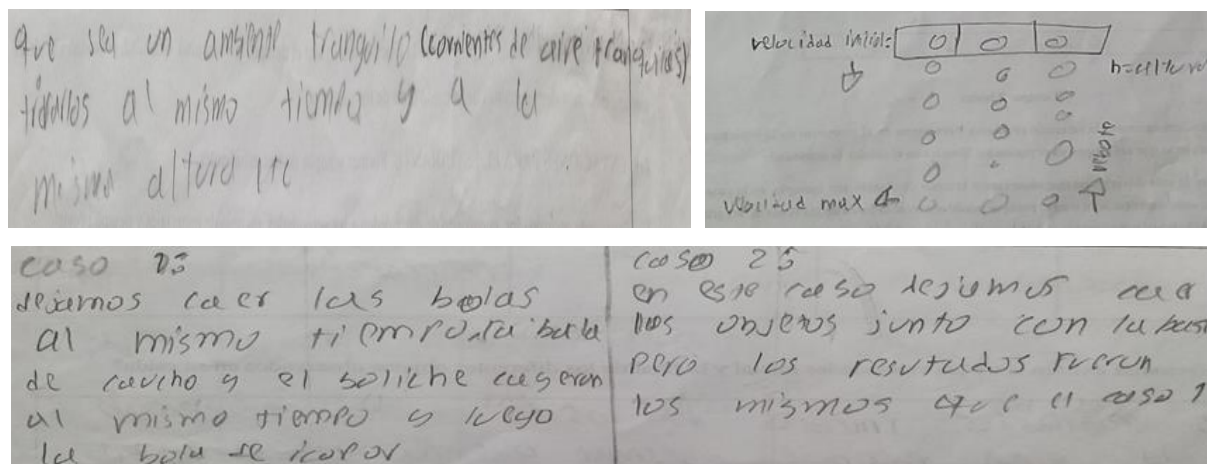 que sea un ambiente tranquilo (corrientes de aire tranquilas)
tirarlos al mismo tiempo y a la
misma altura etc
velocidad inicial:
h=altura
velocidad max
caso 1:
dejamos caer las bolas
al mismo tiempo, la bola
de caucho y el boliche cayeron
al mismo tiempo y luego
la bola de icopor
caso 2:
en este caso dejamos caer
los objetos junto con la base
pero los resutados fueron
los mismos que el caso 1